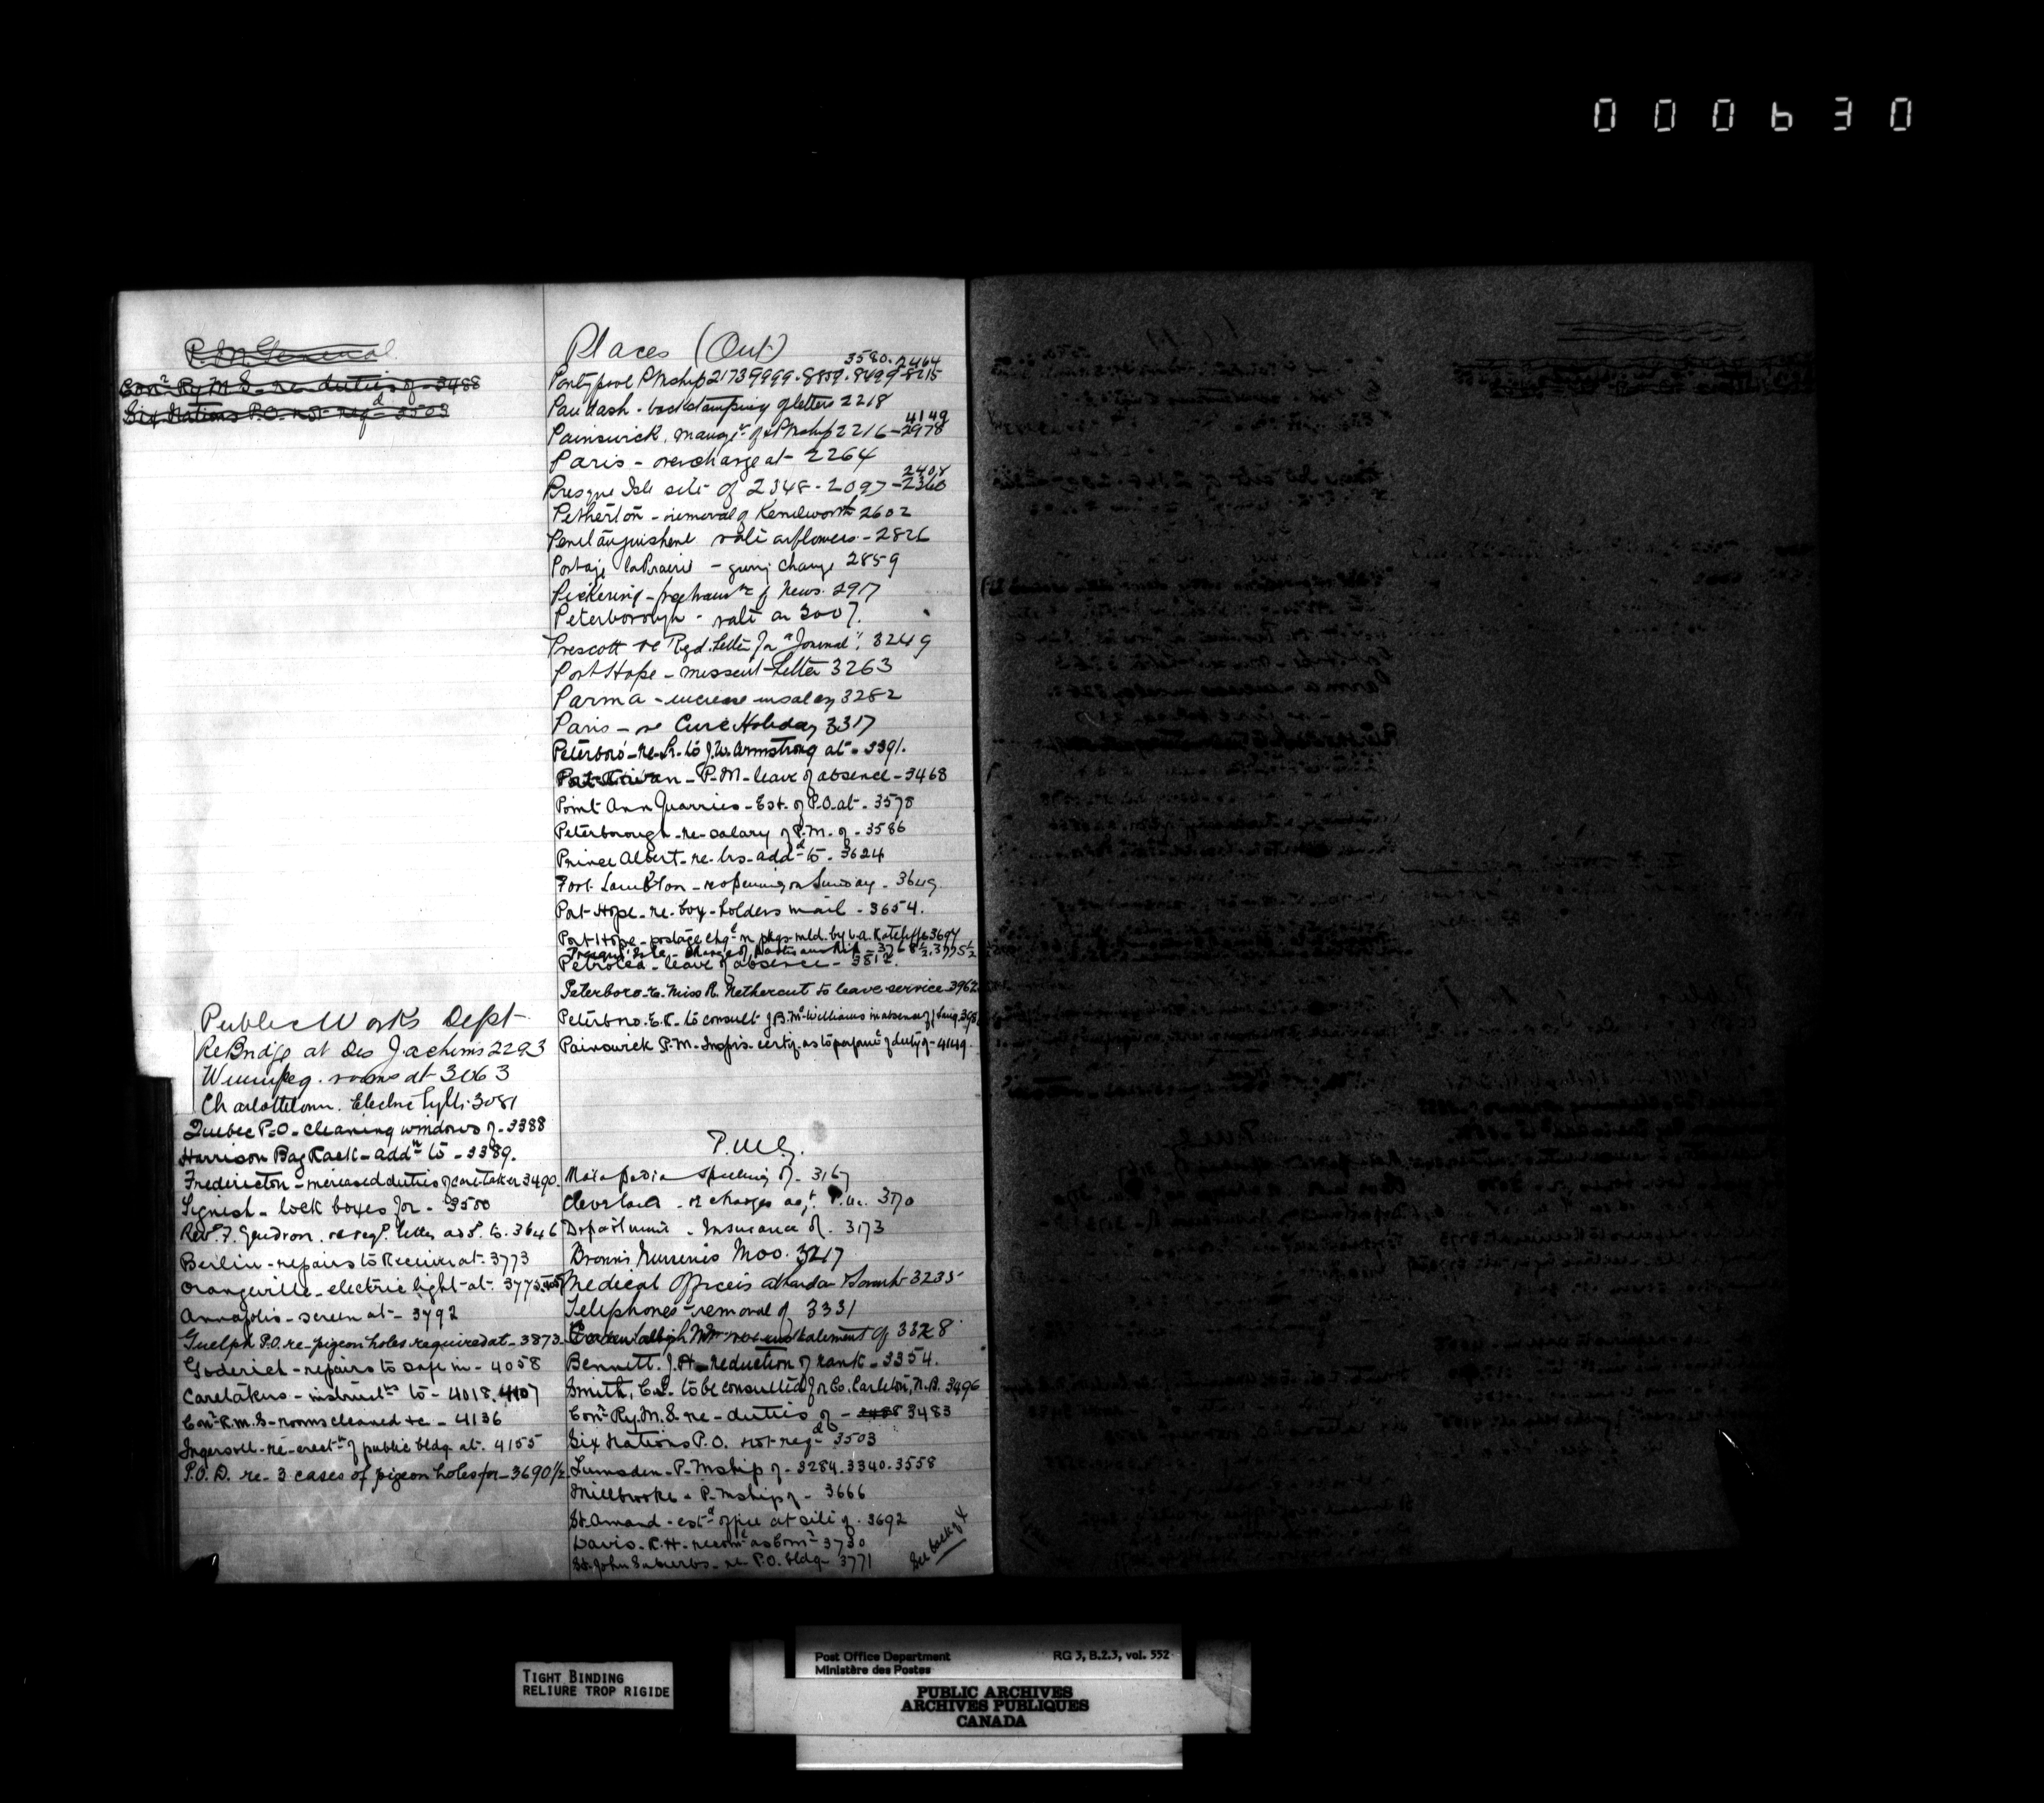 000630
P.M. General
Conr Ry M.S. re duties of - 3488
Six Nations P.O. not reqd 3503
Public Works Dept
Re Bridge at Des Joachims 2293
Winnipeg. rooms at 3063
Charlottetown. Electric Lights 3081
Quebec P.O. - cleaning windows of - 3388
Harrison Bag Rack - addn to - 3389.
Fredericton - increased duties of caretaker 3490.
- lock boxes for - 3500
Revd. F. Gendron. re regd. letter add. to. 3646
Berlin - repairs to Receiver at - 3773
Orangeville - electric light - at - 3775
Annapolis - screen at - 3792
Guelph P.O. re - pigeon holes required at - 3873
Goderich - repairs to safe in - 4058
Caretakers - instructns to - 4018. 4107
Conr. R.M.S - rooms cleaned &c - 4136
Ingersoll - re - erectn of public bldg at. 4155
P.O.D. re - 3 cases of pigeon holes for - 3690 1/2
Places (Out)
3580. 2464
Pontypool P Mship 2173 9999. 8859. 8499 - 8215
Paudash - backstamping of letters 2218
4149
Painswick. mangt. of P Mship 2216 - 2978
Paris - overcharge at - 2264
Presque Isle site of 2348 - 2097 - 2360
Petherton - removal of Kenilworth 2602
Penetanguishene rate on flowers - 2826
Portage la Prairie - giving change 2859
Pickering - free transn of News. 2917
Peterborough - rate on 3007.
Prescott re Regd. Letter for "Journal". 3249
Port Hope - missent Letter 3263
Parma - increase in salary 3282
Paris - re Civic Holiday 3317
Peterboro' - re - Lr. to J.W. Armstrong at - 3391.
P.M. - leave of absence - 3468
Point Ann Quarries - Est. of P.O. at - 3578
Peterborough - re - salary of P.M. of - 3586
Prince Albert - re - lrs - addd to - 3624
Port Lambton - re opening on Sunday - 3649.
Port Hope - re - box - holders mail - 3654.
Port Hope - postage chgd on pkgs mld. by 3694
Presqu' Isle - change of 3768 1/2. 3775 1/2
Petrolea - leave of absence - 3812.
Peterboro - re - Miss R. Nethercut to leave service 3962
Peterboro. E.R. to consult J.B. McWilliams in absence of
Painswick P.M. - Inspr's. certif. as to perfance of duty of - 4149.
P.M.G.
Matapedia spelling of - 3167
Cleveland - re charges agt. P.M. 3170
Department - Insurance of. 3173
3217
Medical Officers 3235
Telephones - removal of 3331
statement of 3328
Bennett. J.H. - reduction of rank - 3354.
Smith, C.L. to be consulted for Co. Carleton, N.B. 3496
Conr. Ry. M.S. re - duties of - 3488 3483
Six Nations P.O. not reqd 3503
Lumsden - P. Mship of - 3284. 3340. 3558
Millbrooke - P. Mship of - 3666
St. Amand - estd office at site of. 3692
Davis - R.H. - recomd as Comr 3730
St. John Suburbs - re P.O. bldg 3771
See back of X
TIGHT BINDING
RELIURE TROP RIGIDE
Post Office Department
Ministère des Postes
RG 3, B.2.3, vol. 552
PUBLIC ARCHIVES
ARCHIVES PUBLIQUES
CANADA